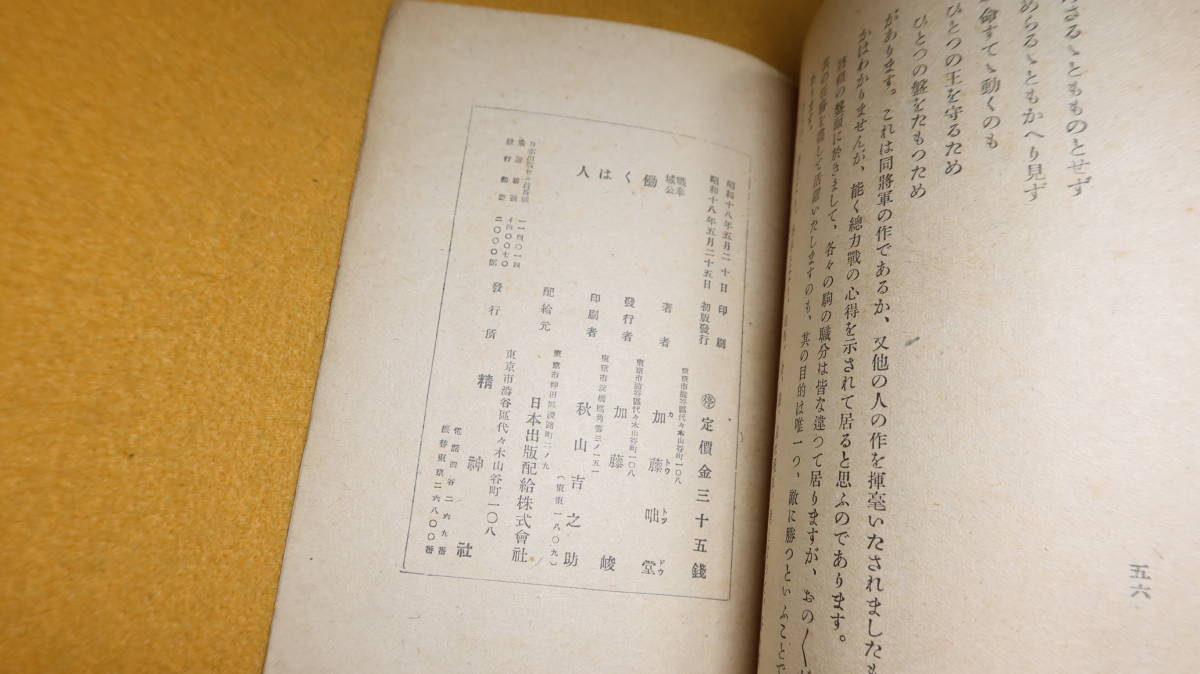 めらるゝともかへり見ず
命すてゝ動くのも
ひとつの王を守るため
ひとつの盤をたもつため
があります。これは同將軍の作であるか、又他の人の作を揮毫いたされましたも
かはわかりませんが、能く總力戰の心得を示されて居ると思ふのであります。
將棋の盤面に於きまして、各々の駒の職分は皆な違つて居りますが、おの〳〵
其の目的は唯一つ、敵に勝つといふことで
五六
昭和十八年五月二十日 印刷
昭和十八年五月二十五日 初版發行
定價金三十五錢
職域奉公
働く人は
東京市澁谷區代々木山谷町一〇八
著者 加藤咄堂
カトウトツドウ
東京市澁谷區代々木山谷町一〇八
發行者 加藤峻
印刷者 秋山吉之助
配給元 日本出版配給株式會社
東京市澁谷區代々木山谷町一〇八
發行所 精神社
電話四谷二六九番
振替東京二六八〇〇番
二〇〇〇部